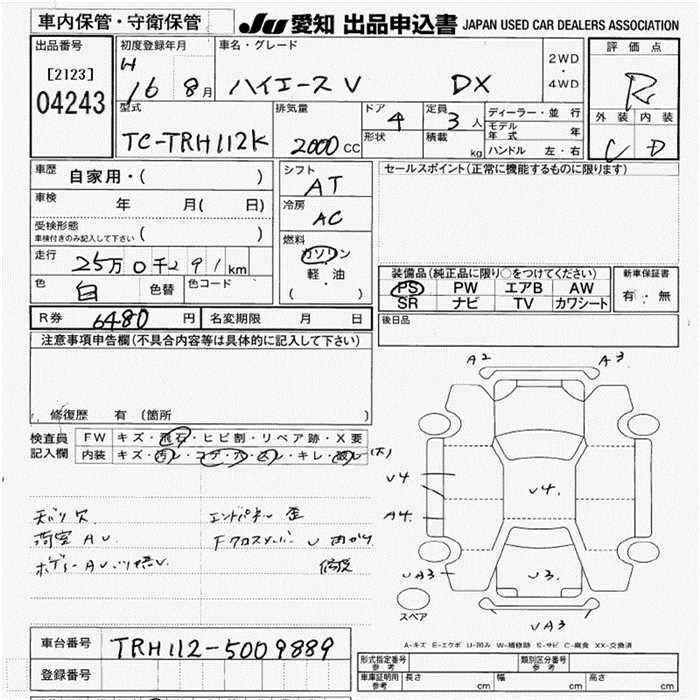 車内保管・守衛保管
JU 愛知 出品申込書 JAPAN USED CAR DEALERS ASSOCIATION
出品番号
[2123]
04243
初度登録年月
H
16 8月
車名・グレード
ハイエースV DX
2WD
・
4WD
評価点
R
外装 内装
C D
型式
TC-TRH112K
排気量
2000 CC
ドア
4
形状
定員
3人
積載
kg
ディーラー・並行
モデル年式 年
ハンドル 左・右
車歴 自家用・( )
車検 年 月( 日)
受検形態
車検付きのみ記入して下さい ( )
走行 25万0千291km
色 白 色替 色コード
シフト
AT
冷房
AC
燃料
ガソリン
軽・油
( )
セールスポイント(正常に機能するものに限ります)
装備品(純正品に限り○をつけてください)
PS PW エアB AW
SR ナビ TV カワシート
新車保証書
有・無
後日品
R券 6480円 名変期限 月 日
注意事項申告欄(不具合内容等は具体的に記入して下さい)
修復歴 有 (箇所
検査員
記入欄
FW キズ・飛石・ヒビ割・リペア跡・X要
内装 キズ・汚レ・コゲ・穴・・キレ・破レ(大)
欠 エンドパネル 歪
荷室 AU
ボディーAU
A2 A3
U4
U4.
A4.
UA3
U3.
UA3
スペア
A-キズ E-エクボ U-凹み W-補修跡 S-サビ C-腐食 XX-交換済
車台番号 TRH112-5009889
登録番号
形式指定番号
参考
類別区分番号
参考
車庫証明用
参考
長さ cm 幅 cm 高さ cm